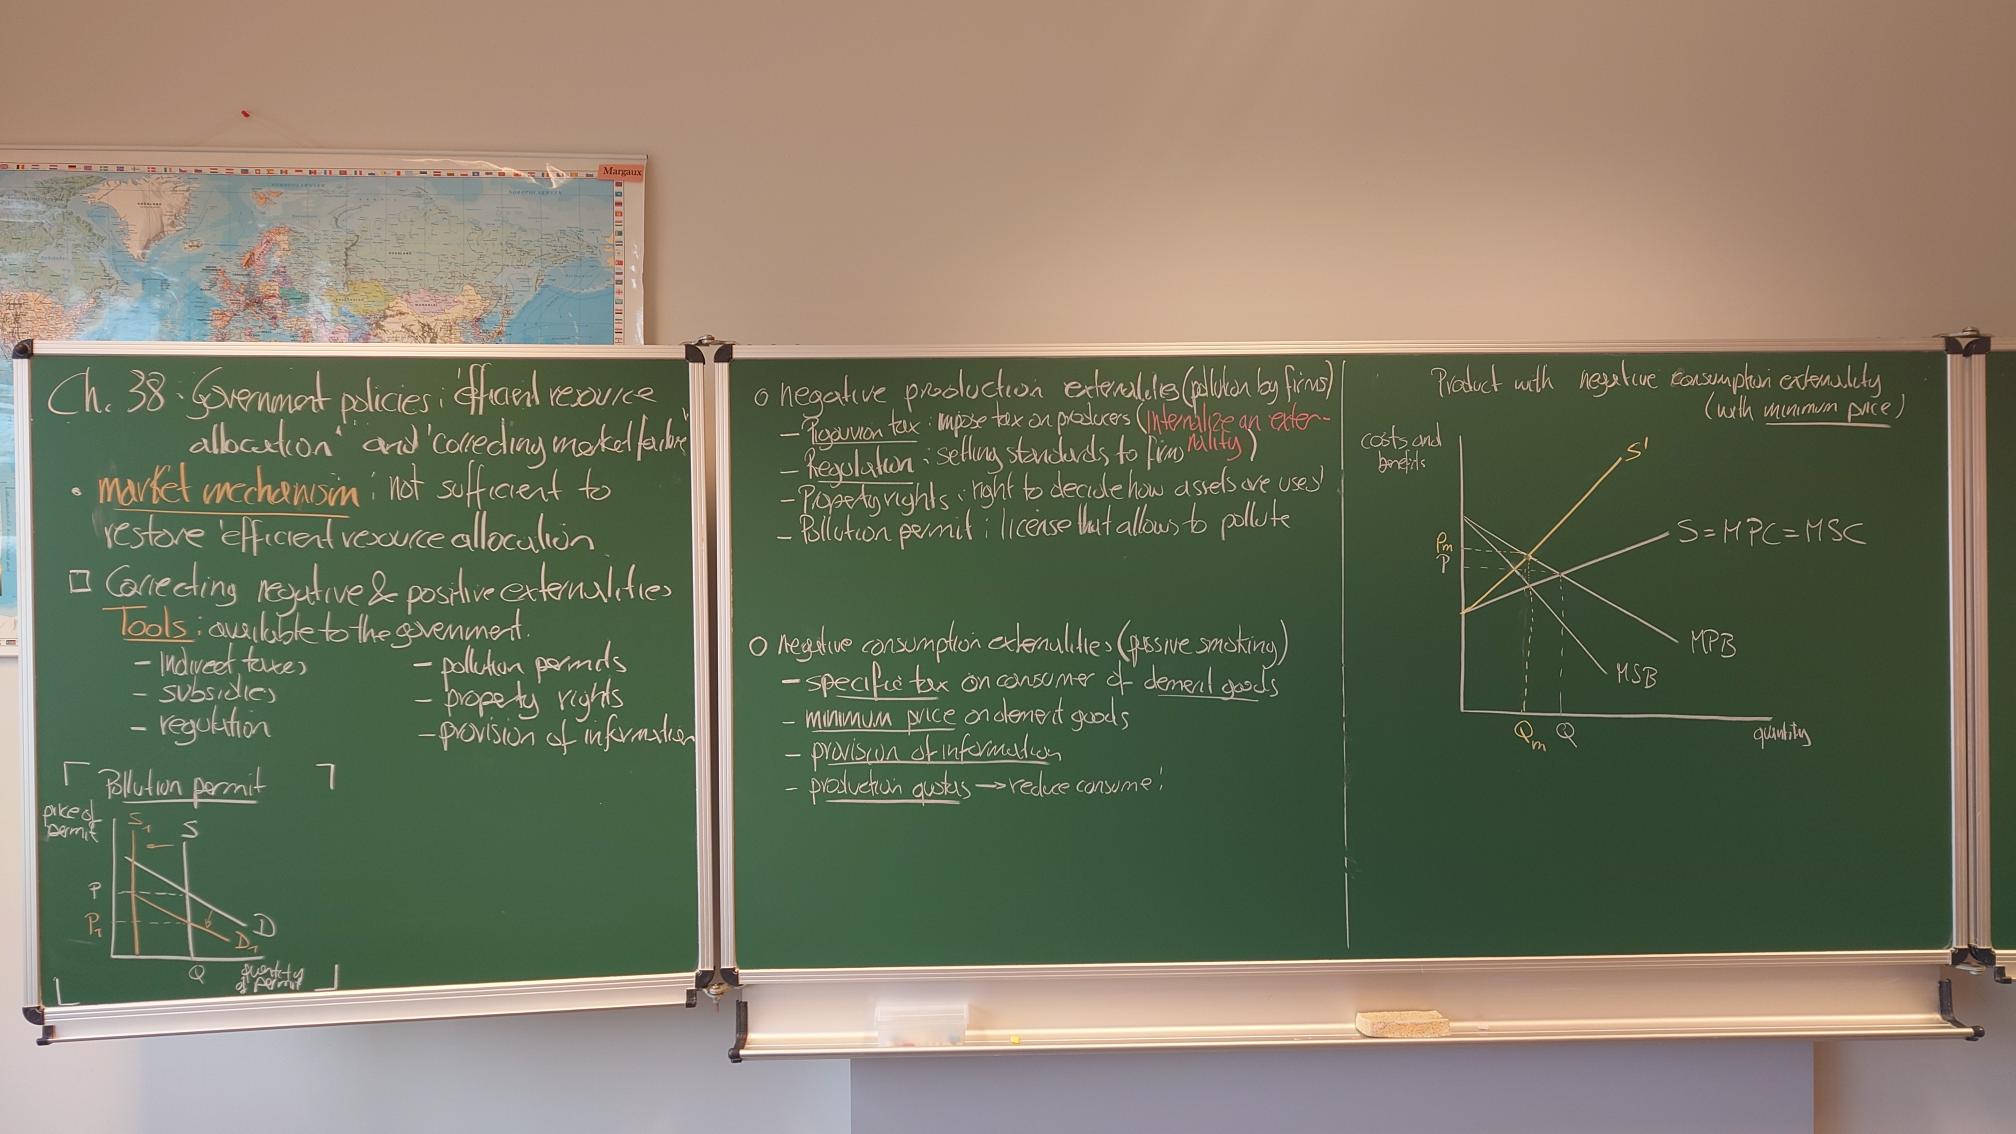 Margaux
Ch. 38: Government policies: 'efficient resource
allocation' and 'correcting market failure'
• market mechanism: not sufficient to
restore 'efficient resource allocation
□ Correcting negative & positive externalities
Tools: available to the government.
- Indirect taxes
- subsidies
- regulation
- pollution permits
- property rights
- provision of information
Pollution permit
price of
permit
S1
S
P
P1
D
D1
Q
quantity
of permit
o negative production externalities (pollution by firms)
- Pigouvian tax: impose tax on producers (internalize an exter-
nality)
- Regulation: setting standards to firms
- Property rights: right to decide how assets are used
- Pollution permit: license that allows to pollute
o Negative consumption externalities (passive smoking)
- specific tax on consumer of demerit goods
- minimum price on demerit goods
- provision of information
- production quotas → reduce consume!
Product with negative consumption externality
(with minimum price)
costs and
benefits
S'
S = MPC = MSC
Pm
P
MPB
MSB
Qm
Q
quantity